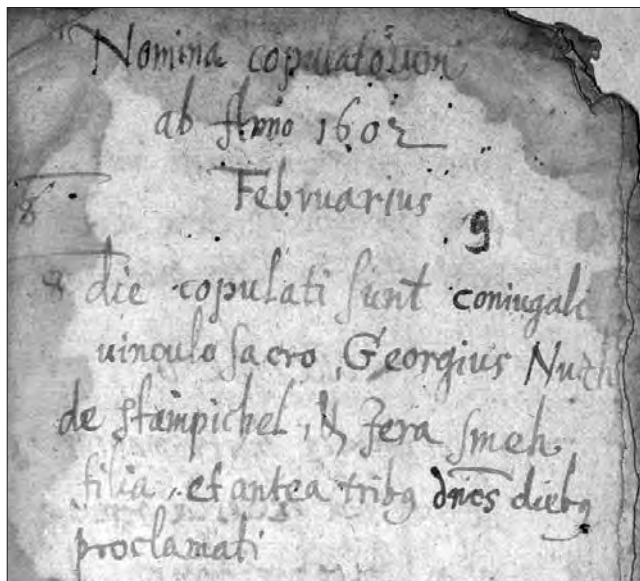 Nomina copulatorum
ab Anno 1602
8
Februarius
9
8 die copulati sunt coniugali
uinculo sacro, Georgius
de Stampichel, Jera Smeh
filia, et antea tribꝯ dnēs diebꝯ
proclamati